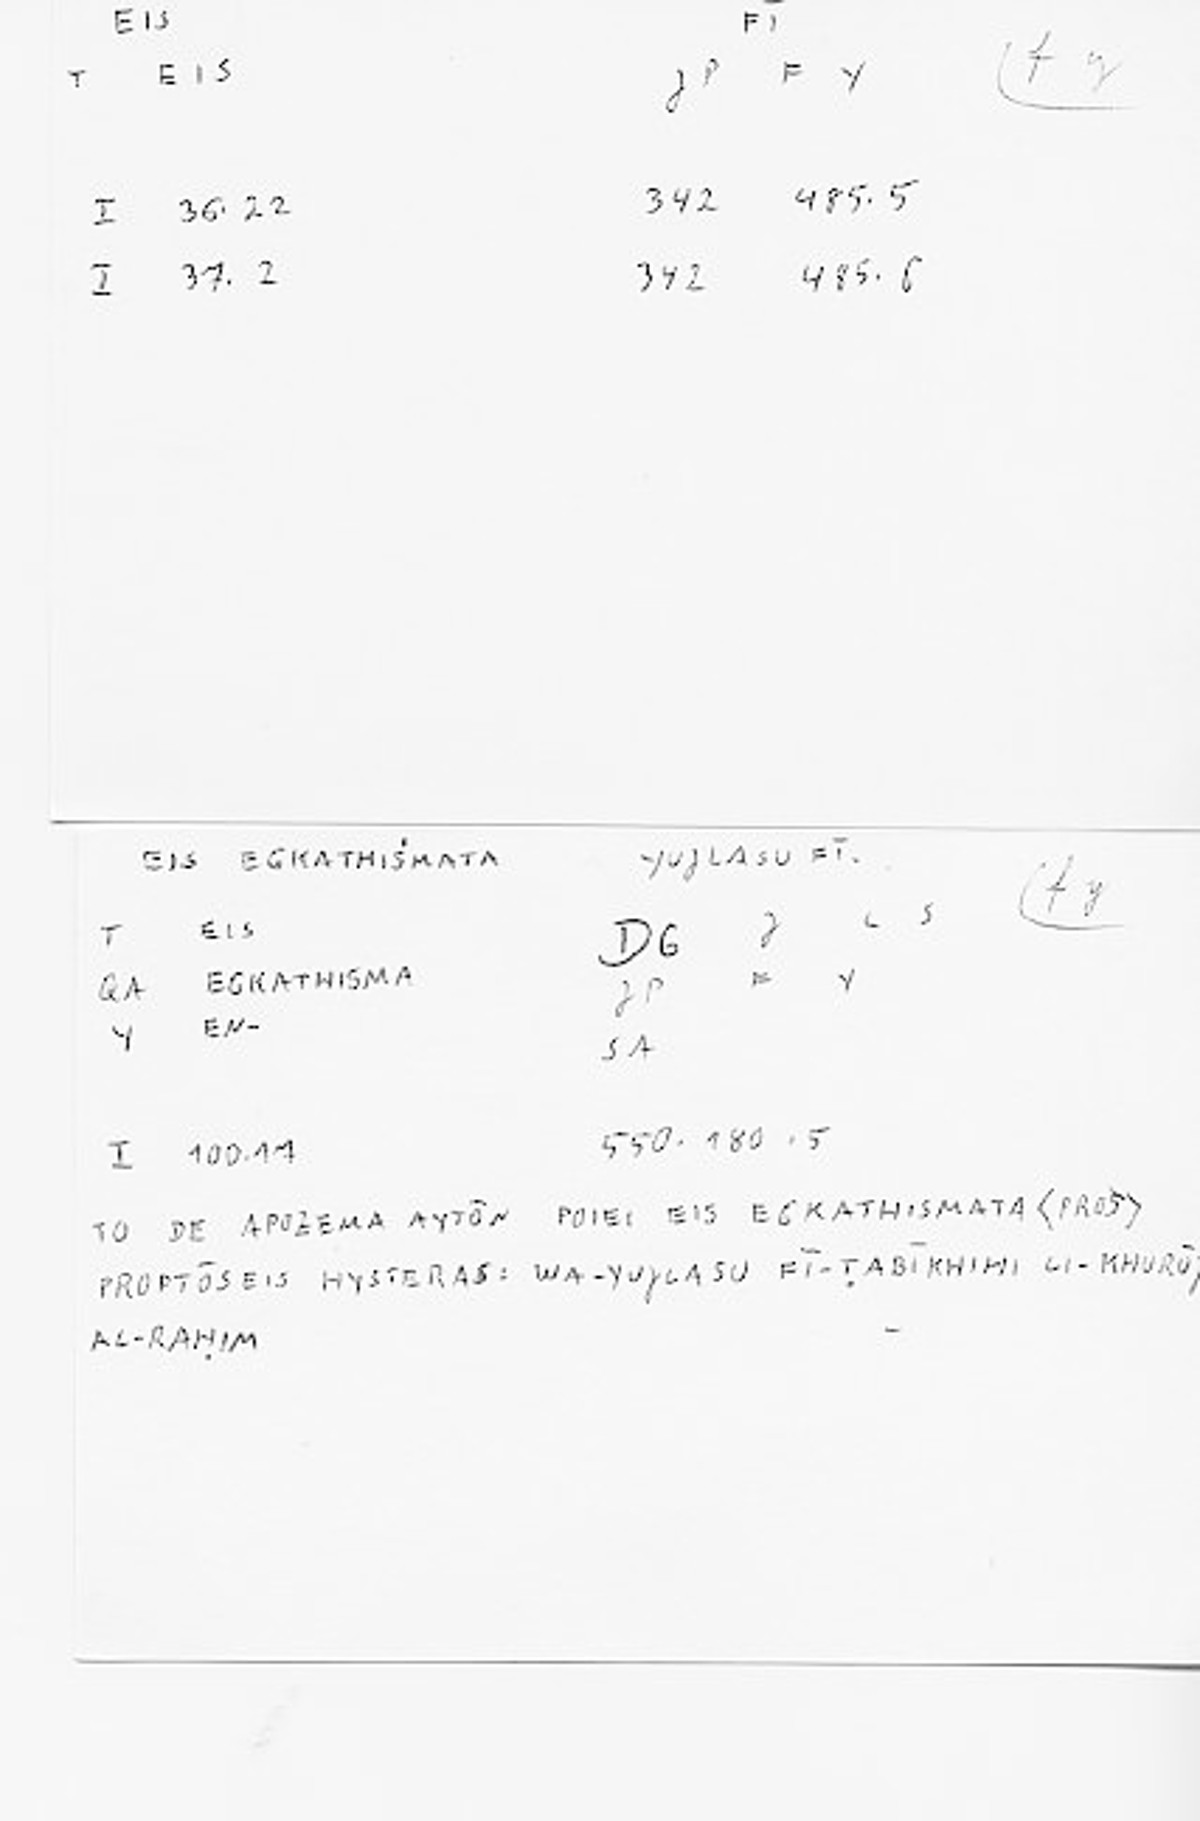 EIS FĪ
T EIS JP F Y fy
I 36.22 342 485.5
I 37.2 342 485.6
EIS EGKATHISMATA YUJLASU FĪ. fy
T EIS DG J L S
QA EGKATHISMA JP F Y
Y EN- SA
I 100.11 550.180.5
TO DE APOZEMA AYTŌN POIEI EIS EGKATHISMATA <PROS>
PROPTŌSEIS HYSTERAS: WA-YUJLASU FĪ-ṬABĪKHIHI LI-KHURŪJ
AL-RAḤIM